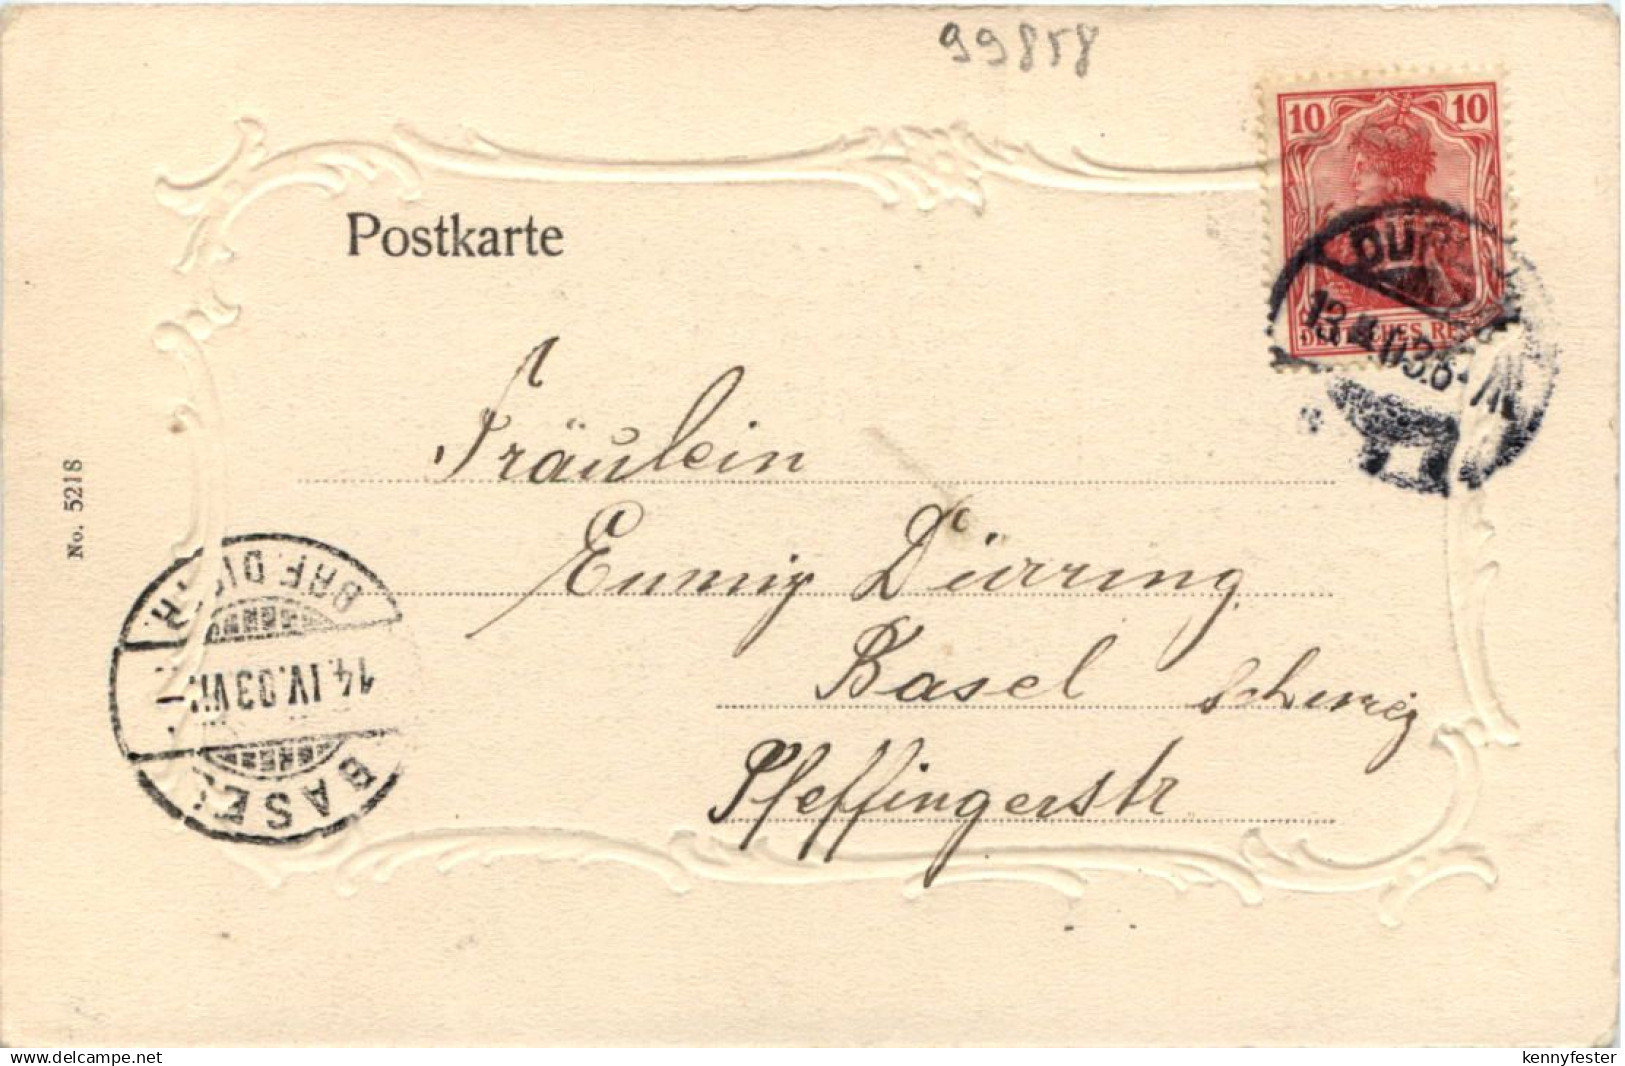 99858
10 10
DEUTSCHES REICH
DURLACH
13.4.03.6-
Postkarte
No. 5218
Fräulein
Emmy Dürring
Basel Schweiz
Pfeffingerstr
BASEL
14.IV.03.VII.-
BRF.DISTR.
kennyfester